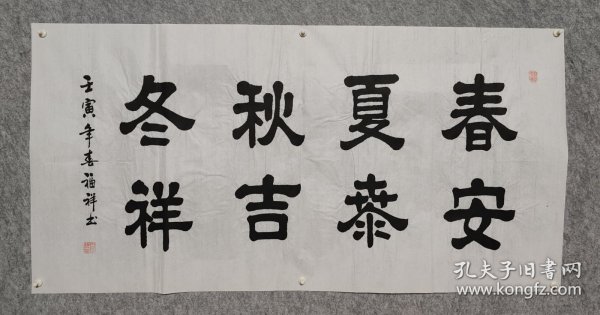 春安
夏泰
秋吉
冬祥
壬寅年喜福祥书
孔夫子旧书网
www.kongfz.com